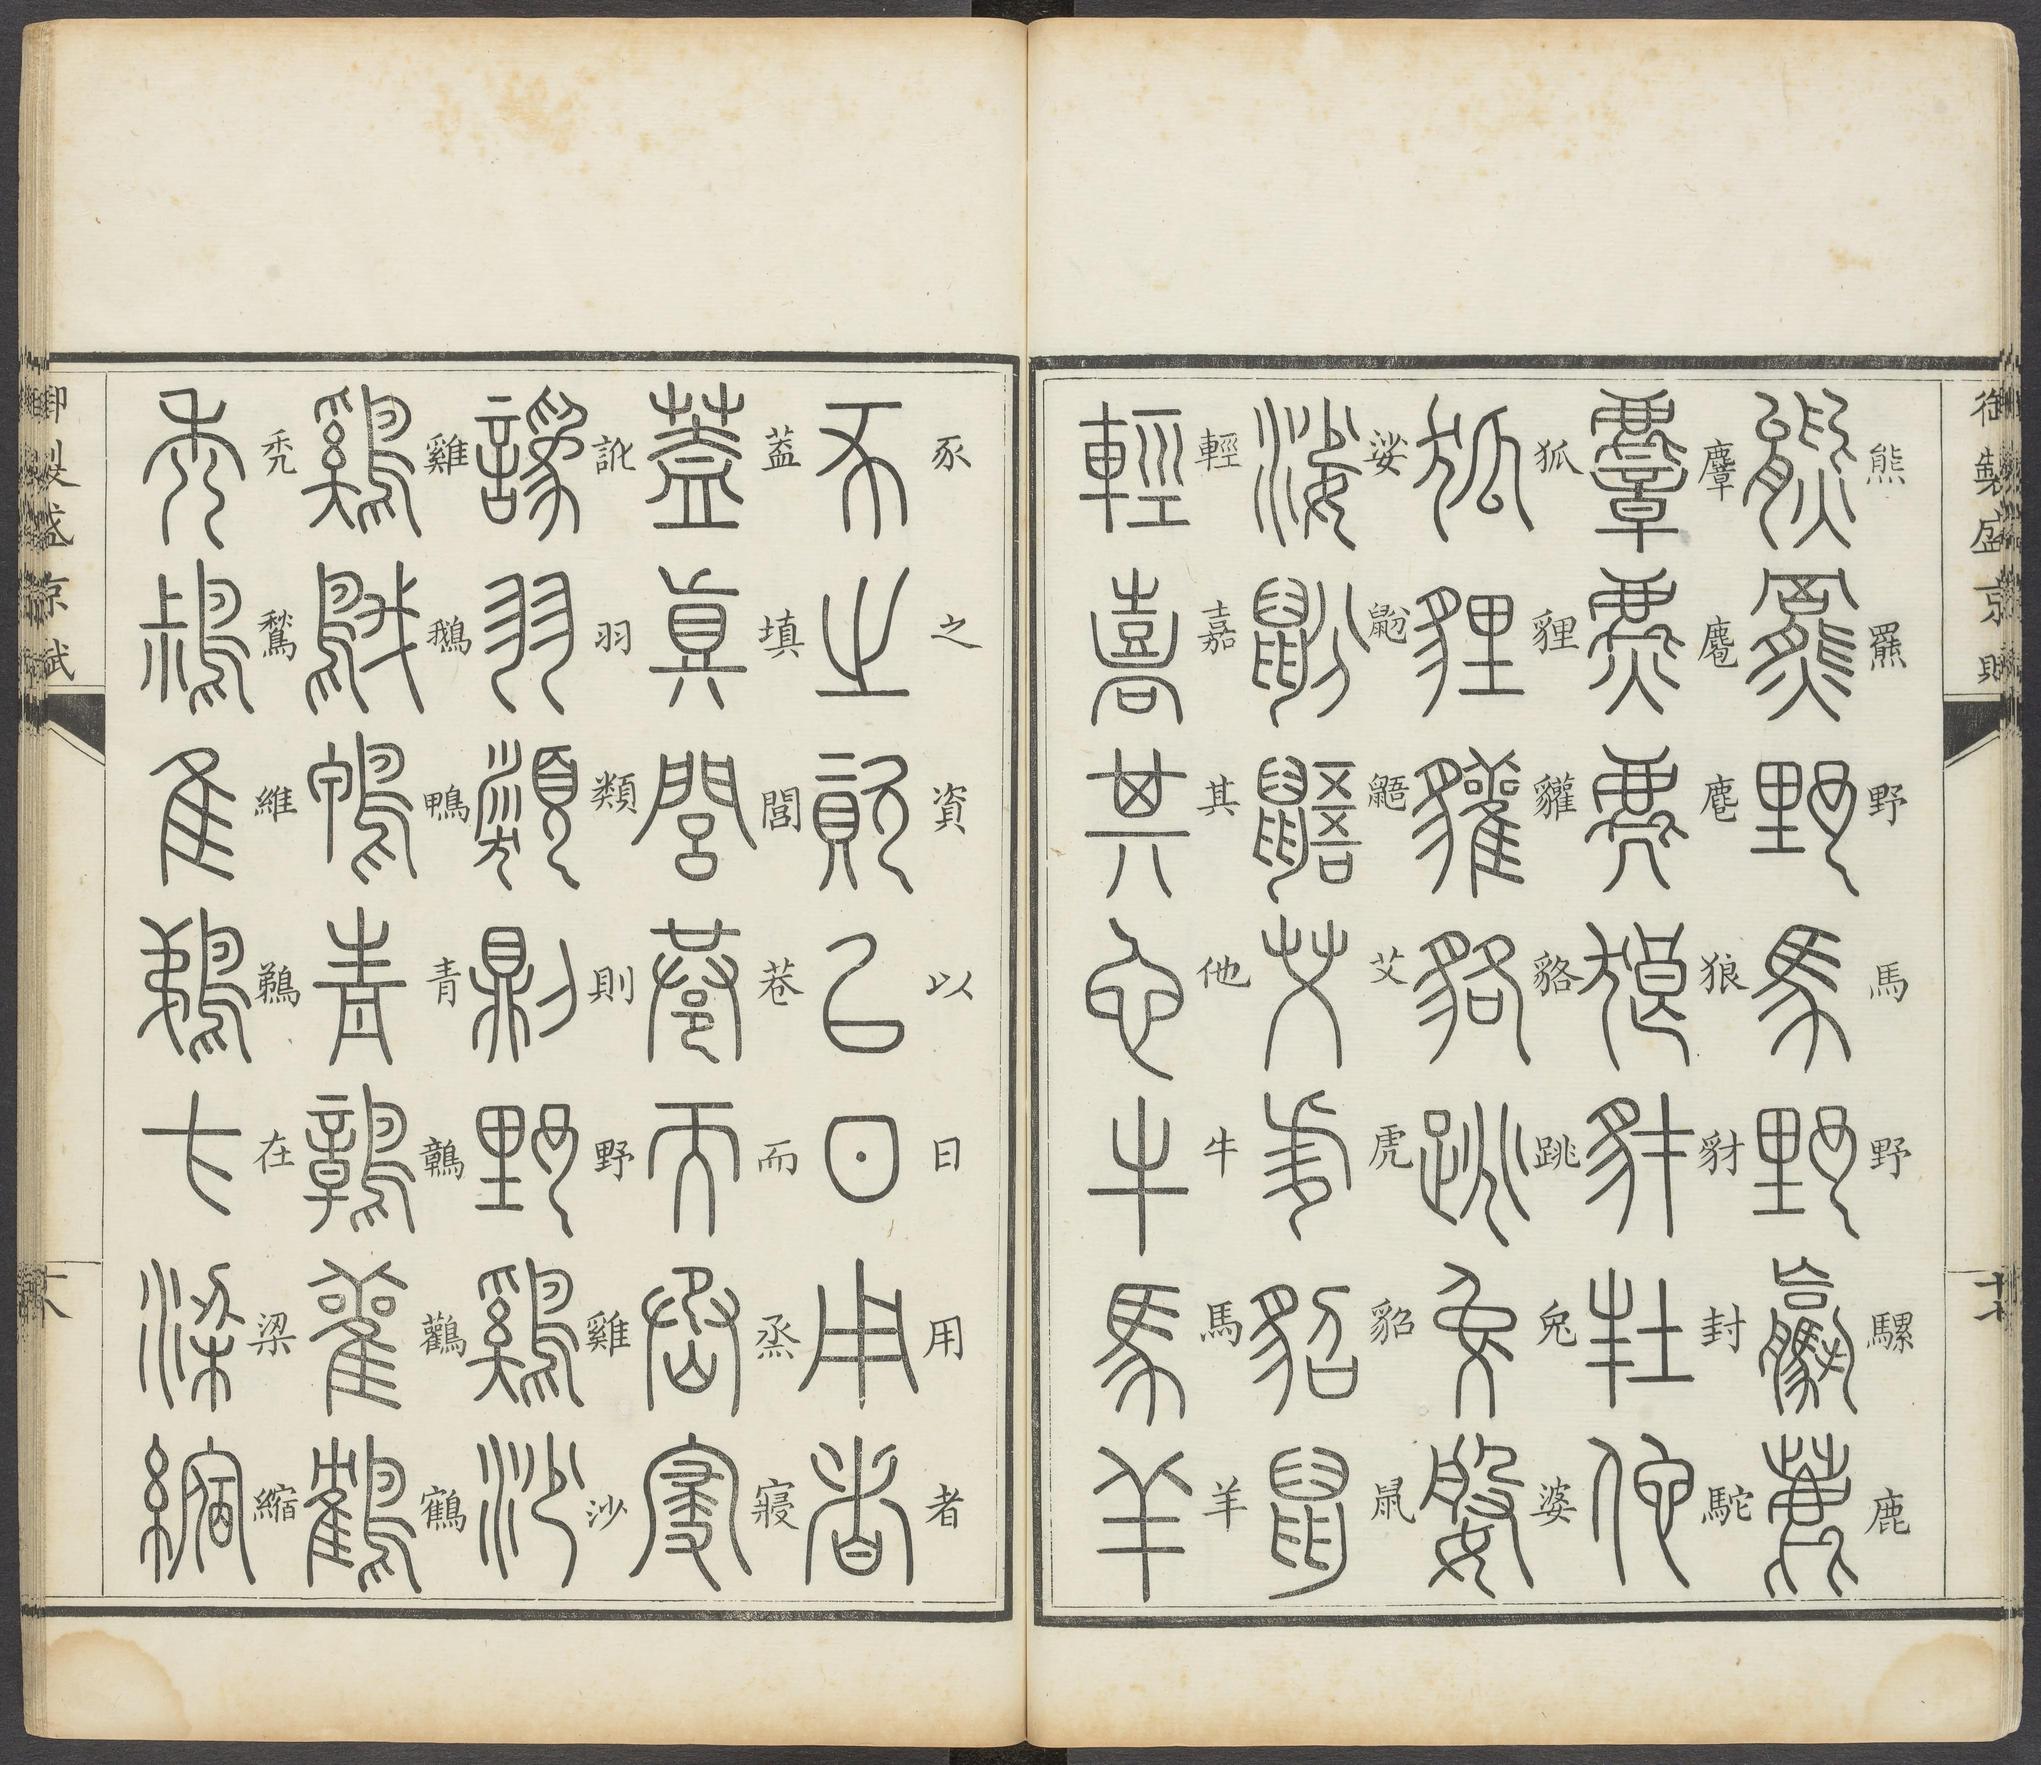 御製盛京賦
熊羆野馬野騾鹿
麞麅麂狼豺封駝
狐貍貛貉跳兔婆
娑鼢鼯艾虎貂鼠
輕嘉其他牛馬羊
豕之資以日用者
蓋填閭巷而烝寢
訛羽類則野雞沙
雞鵝鴨青鶉鸛鶴
禿鶖維鵜在梁縮
御製盛京賦